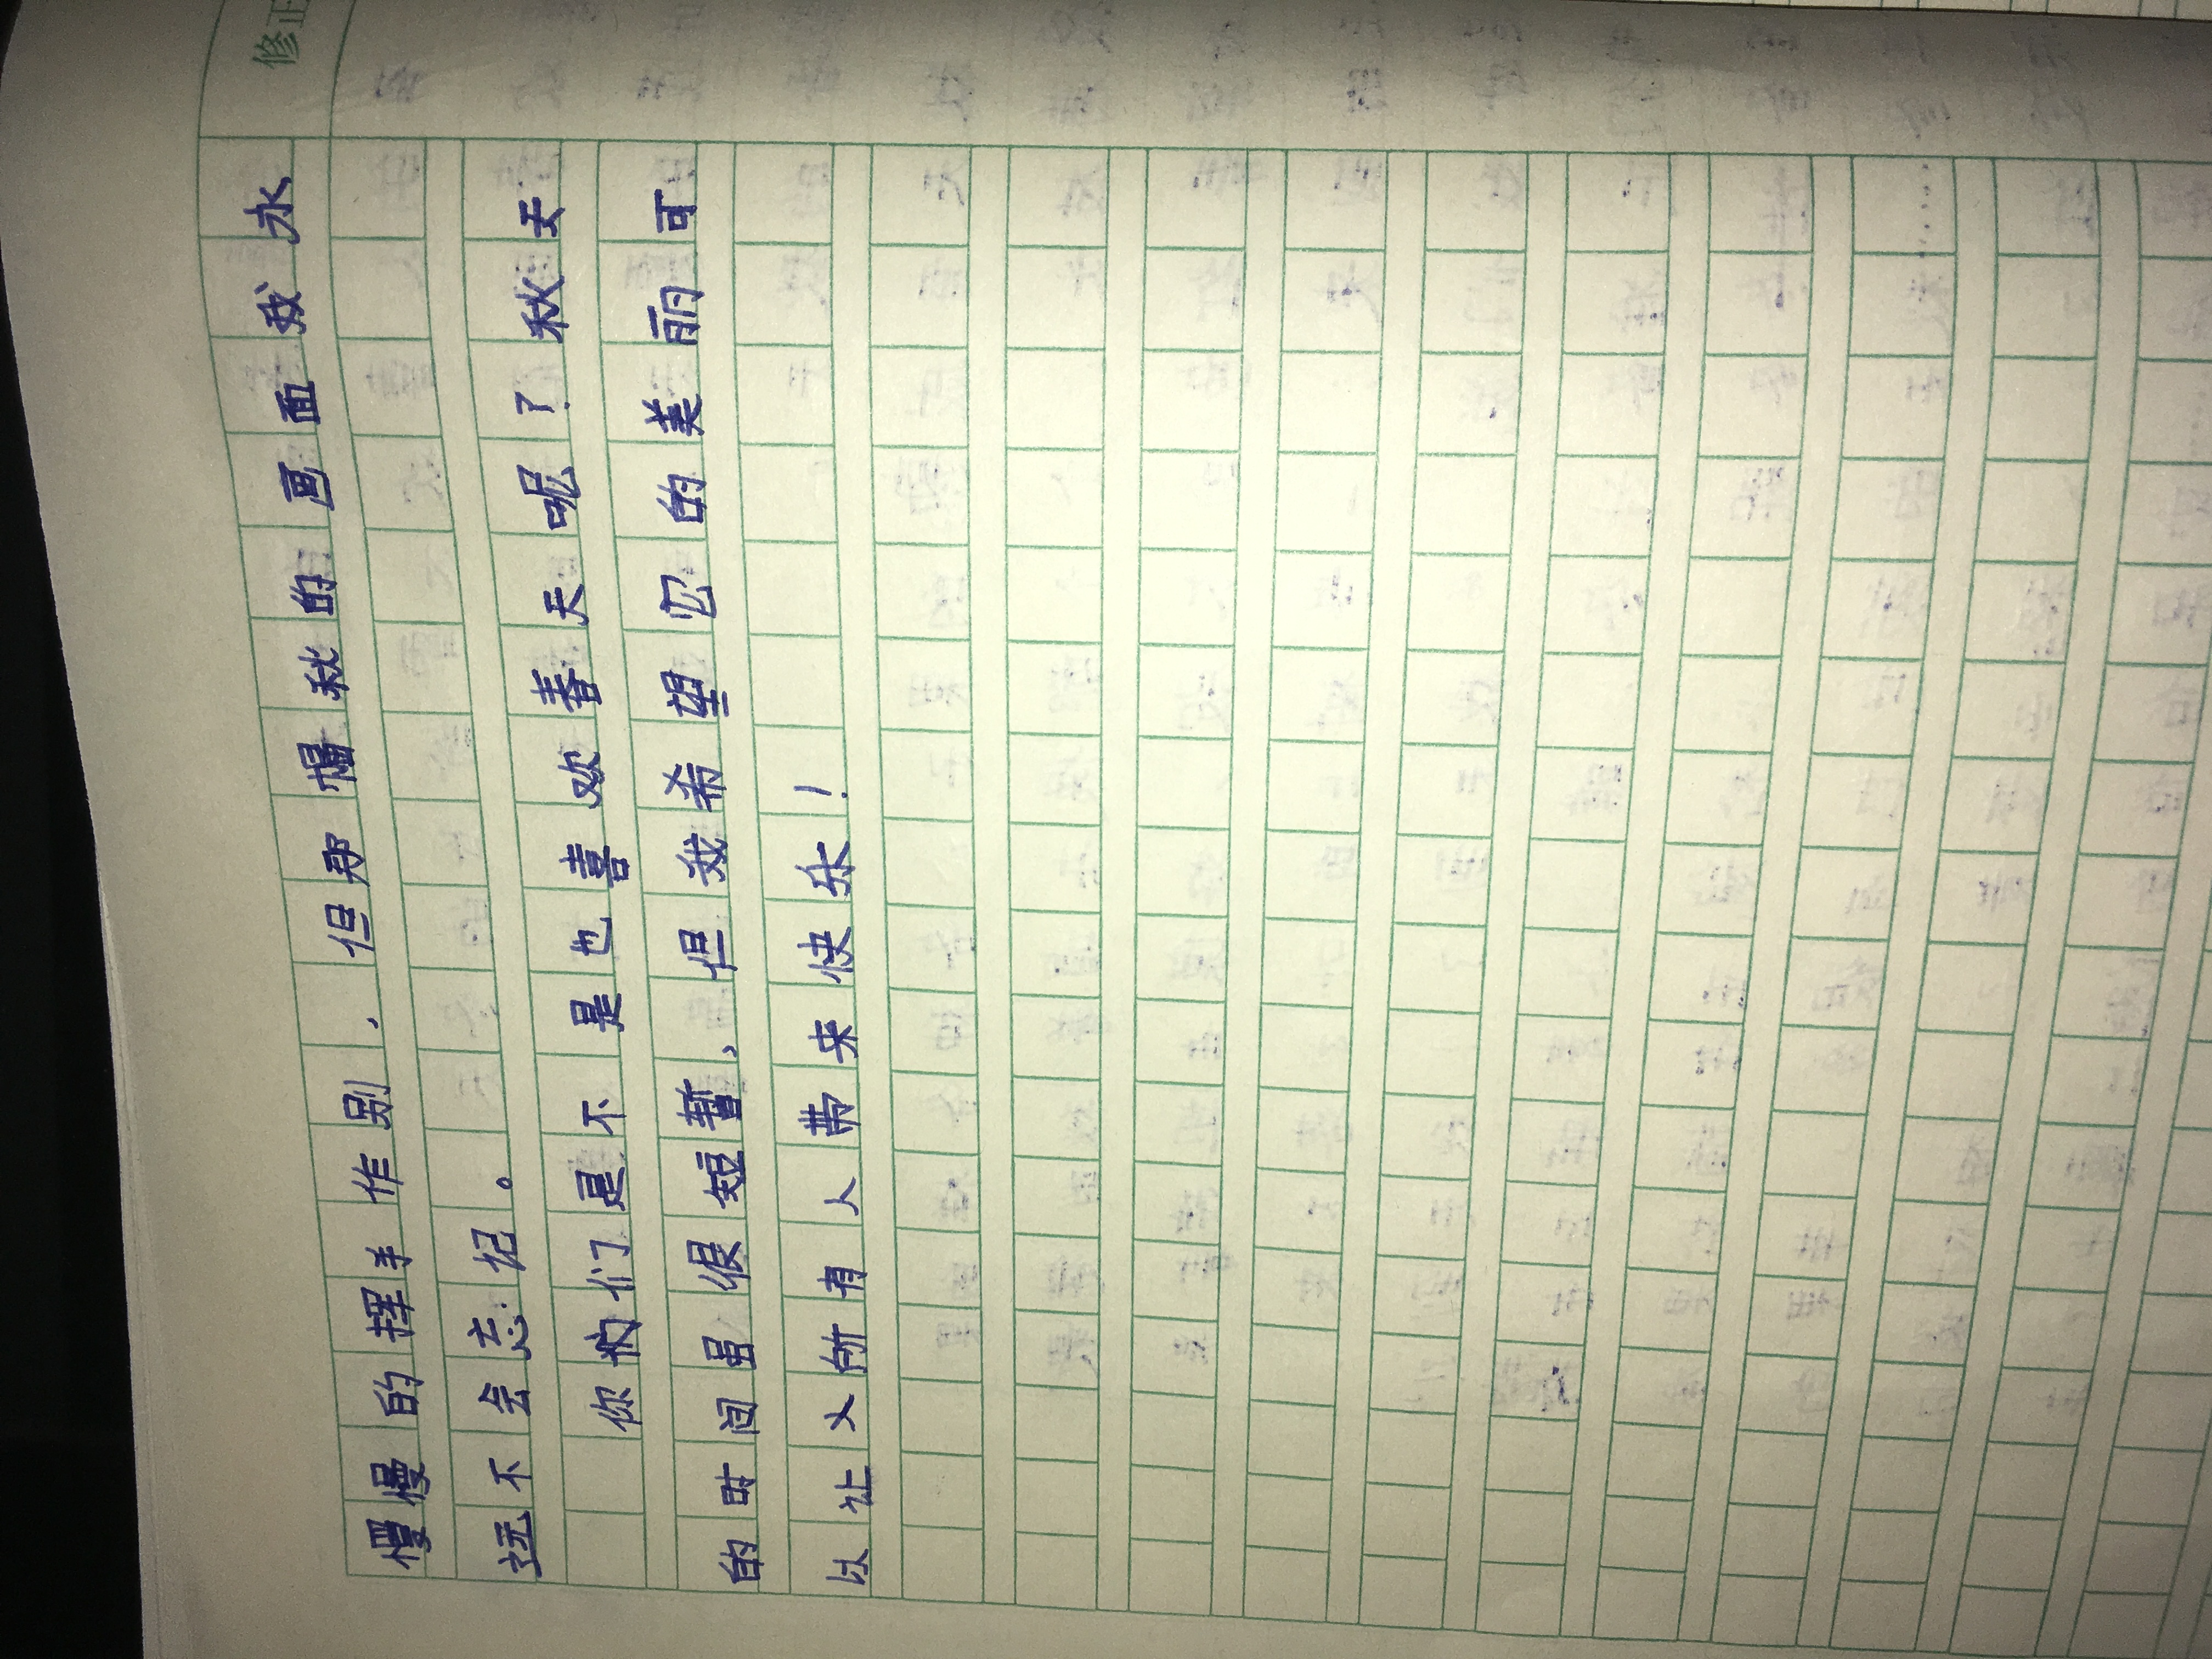 修正
慢慢的挥手作别，但那幅秋的画面我永
远不会忘记。
你们是不是也喜欢春天呢？秋天
的时间虽很短暂，但我希望它的美丽可
以让所有人带来快乐！